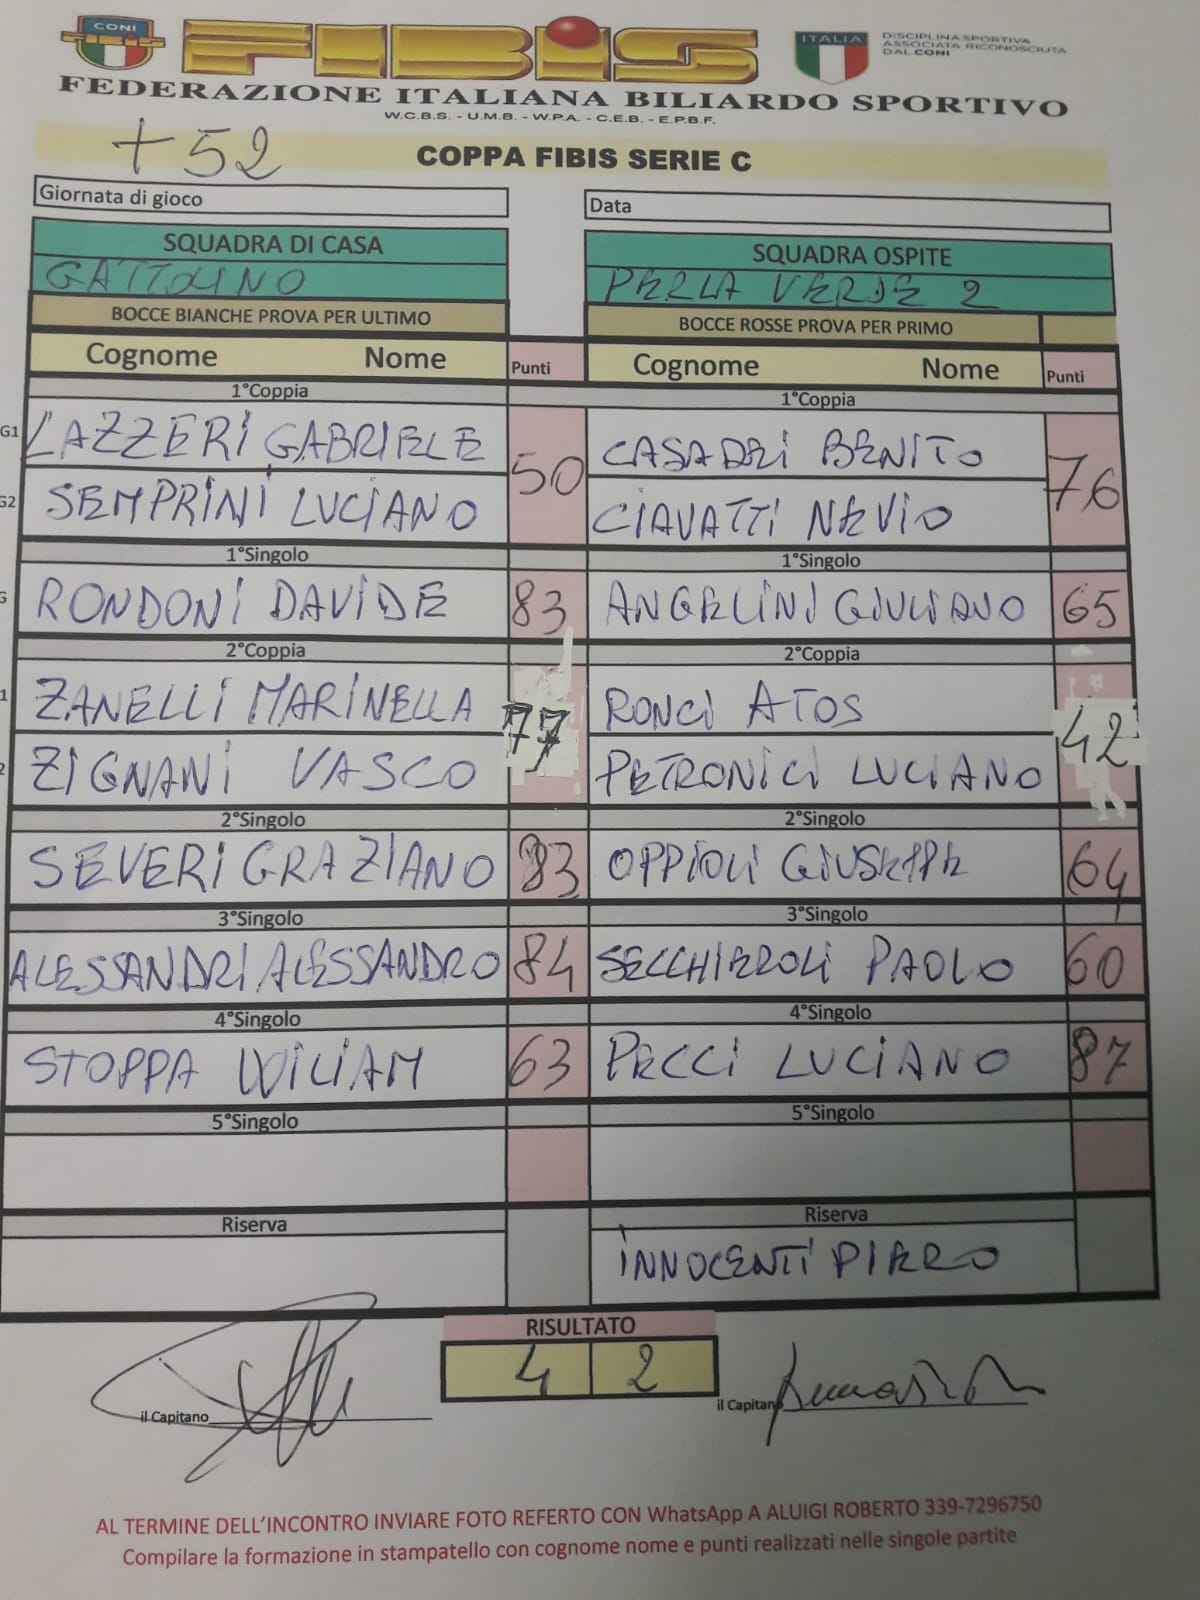 CONI
FIBIS
FIBIS
ITALIA
DISCIPLINA SPORTIVA
ASSOCIATA RICONOSCIUTA
DAL CONI
FEDERAZIONE ITALIANA BILIARDO SPORTIVO
W.C.B.S. - U.M.B. - W.P.A. - C.E.B. - E.P.B.F.
+52
COPPA FIBIS SERIE C
Giornata di gioco
Data
SQUADRA DI CASA SQUADRA OSPITE
GATTOLINO PERLA VERDE 2
BOCCE BIANCHE PROVA PER ULTIMO BOCCE ROSSE PROVA PER PRIMO
Cognome Nome Punti Cognome Nome Punti
1°Coppia 1°Coppia
G1 LAZZERI GABRIELE 50 CASADEI BENITO 76
G2 SEMPRINI LUCIANO CIAVATTI NEVIO
1°Singolo 1°Singolo
G RONDONI DAVIDE 83 ANGELINI GIULIANO 65
2°Coppia 2°Coppia
1 ZANELLI MARINELLA 77 RONCI ATOS 42
2 ZIGNANI VASCO PETRONICI LUCIANO
2°Singolo 2°Singolo
SEVERI GRAZIANO 83 OPPIOLI GIUSEPPE 64
3°Singolo 3°Singolo
ALESSANDRI ALESSANDRO 84 SECCHIEROLI PAOLO 60
4°Singolo 4°Singolo
STOPPA WILIAM 63 PECCI LUCIANO 87
5°Singolo 5°Singolo
Riserva Riserva
INNOCENTI PIERO
RISULTATO
4 2
il Capitano
il Capitano
AL TERMINE DELL'INCONTRO INVIARE FOTO REFERTO CON WhatsApp A ALUIGI ROBERTO 339-7296750
Compilare la formazione in stampatello con cognome nome e punti realizzati nelle singole partite